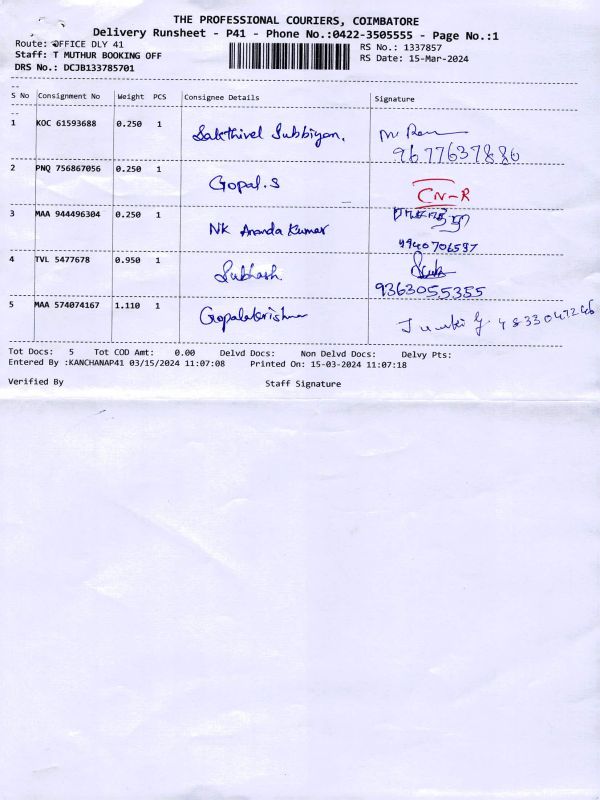 THE PROFESSIONAL COURIERS, COIMBATORE
Delivery Runsheet - P41 - Phone No.:0422-3505555 - Page No.:1
Route: OFFICE DLY 41 RS No.: 1337857
Staff: T MUTHUR BOOKING OFF RS Date: 15-Mar-2024
DRS No.: DCJB133785701
S No Consignment No Weight PCS Consignee Details Signature
1 KOC 61593688 0.250 1 Sakthivel Subbiyan.
9677637880
2 PNQ 756867056 0.250 1 Gopal.S CN-R
3 MAA 944496304 0.250 1 NK Ananda Kumar
9940706597
4 TVL 5477678 0.950 1 Subhash
9363055355
5 MAA 574074167 1.110 1 Gopalakrishna
Tot Docs: 5 Tot COD Amt: 0.00 Delvd Docs: Non Delvd Docs: Delvy Pts:
Entered By :KANCHANAP41 03/15/2024 11:07:08 Printed On: 15-03-2024 11:07:18
Verified By Staff Signature